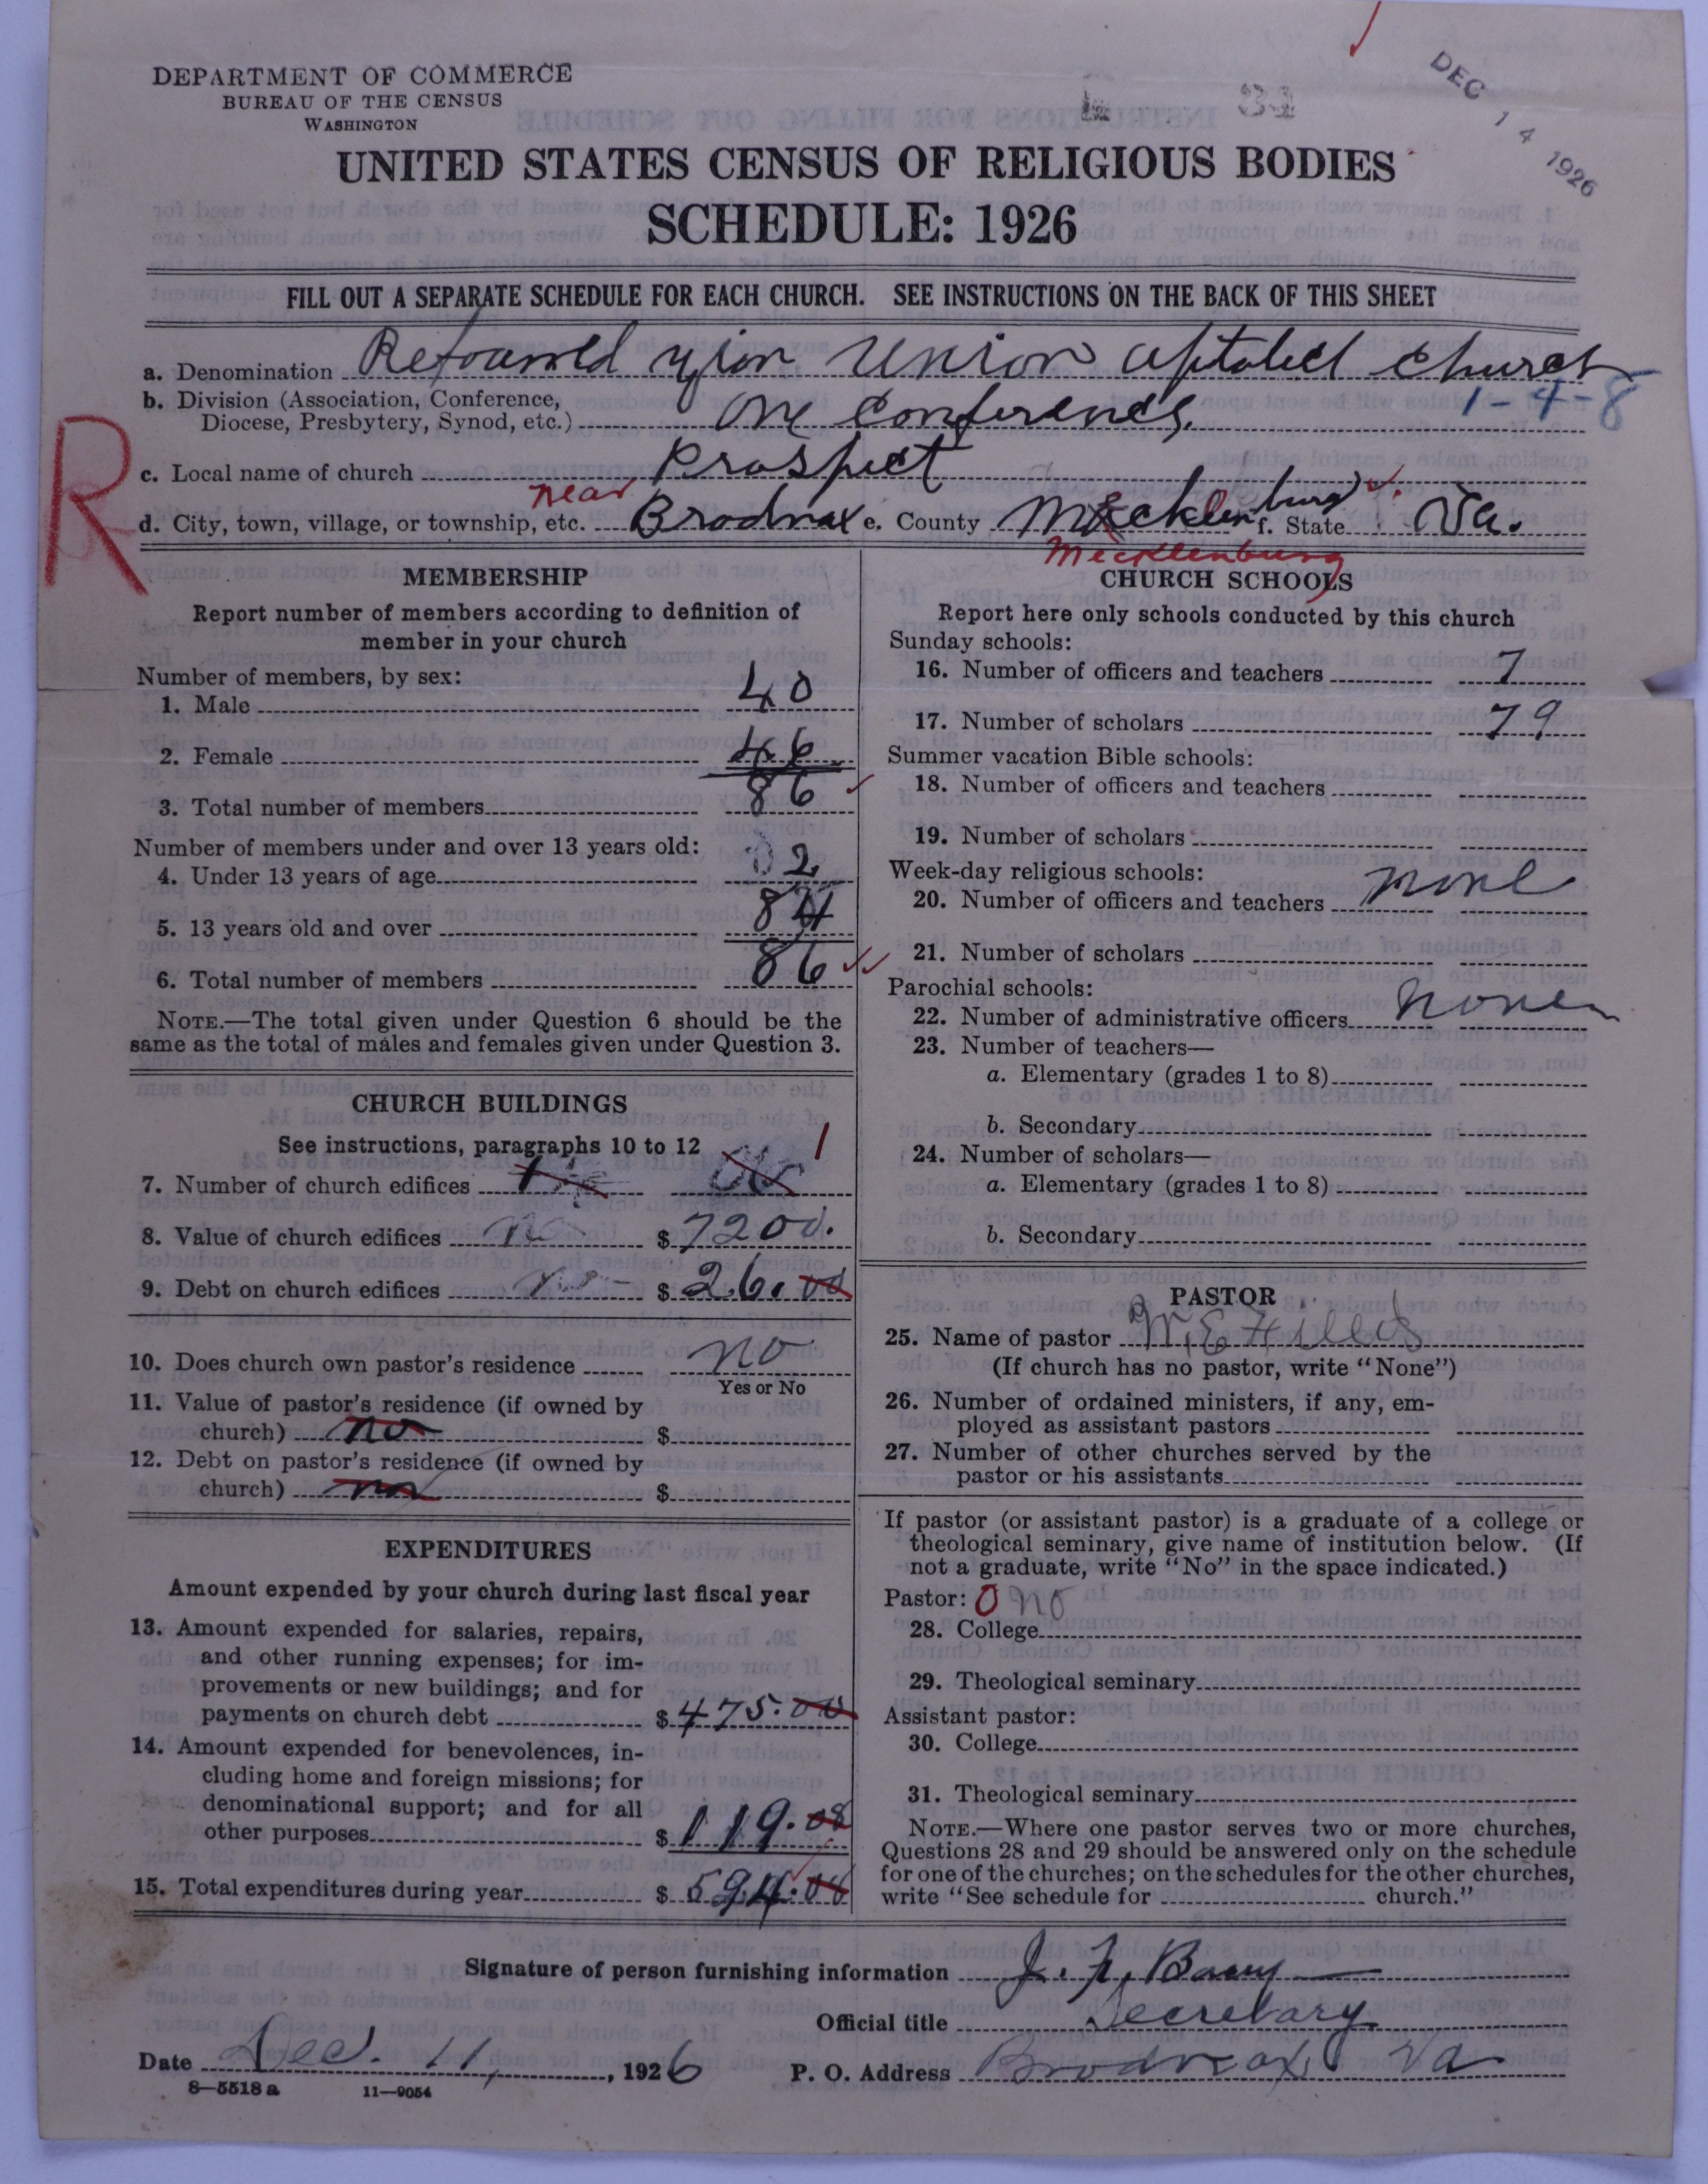 DEC 14 1926
DEPARTMENT OF COMMERCE
BUREAU OF THE CENSUS
WASHINGTON
UNITED STATES CENSUS OF RELIGIOUS BODIES
SCHEDULE: 1926
FILL OUT A SEPARATE SCHEDULE FOR EACH CHURCH. SEE INSTRUCTIONS ON THE BACK OF THIS SHEET
a. Denomination Reformed Zion Union church
b. Division (Association, Conference,
Diocese, Presbytery, Synod, etc.) Conference. 1-4-8
R
c. Local name of church Prospect
d. City, town, village, or township, etc. near Brodnax e. County Mecklenburg f. State Va.
Mecklenburg
MEMBERSHIP
Report number of members according to definition of
member in your church
Number of members, by sex:
1. Male 40
2. Female 46
3. Total number of members 86
Number of members under and over 13 years old:
4. Under 13 years of age 2
5. 13 years old and over 84
6. Total number of members 86
NOTE.—The total given under Question 6 should be the
same as the total of males and females given under Question 3.
CHURCH BUILDINGS
See instructions, paragraphs 10 to 12
7. Number of church edifices 1
8. Value of church edifices $ 7200.
9. Debt on church edifices $ 26.00
10. Does church own pastor's residence no
Yes or No
11. Value of pastor's residence (if owned by
church) no $
12. Debt on pastor's residence (if owned by
church) no $
EXPENDITURES
Amount expended by your church during last fiscal year
13. Amount expended for salaries, repairs,
and other running expenses; for im-
provements or new buildings; and for
payments on church debt $ 475.00
14. Amount expended for benevolences, in-
cluding home and foreign missions; for
denominational support; and for all
other purposes $ 119.08
15. Total expenditures during year $ 594.08
CHURCH SCHOOLS
Report here only schools conducted by this church
Sunday schools:
16. Number of officers and teachers 7
17. Number of scholars 79
Summer vacation Bible schools:
18. Number of officers and teachers
19. Number of scholars
Week-day religious schools:
20. Number of officers and teachers none
21. Number of scholars
Parochial schools:
22. Number of administrative officers none
23. Number of teachers—
a. Elementary (grades 1 to 8)
b. Secondary
24. Number of scholars—
a. Elementary (grades 1 to 8)
b. Secondary
PASTOR
25. Name of pastor W. E.
(If church has no pastor, write "None")
26. Number of ordained ministers, if any, em-
ployed as assistant pastors
27. Number of other churches served by the
pastor or his assistants
If pastor (or assistant pastor) is a graduate of a college or
theological seminary, give name of institution below. (If
not a graduate, write "No" in the space indicated.)
Pastor: 0 no
28. College
29. Theological seminary
Assistant pastor:
30. College
31. Theological seminary
NOTE.—Where one pastor serves two or more churches,
Questions 28 and 29 should be answered only on the schedule
for one of the churches; on the schedules for the other churches,
write "See schedule for church."
Signature of person furnishing information J. F.
Official title Secretary
Date Dec. 11, 1926 P. O. Address Brodnax Va
8—5518 a 11—9054